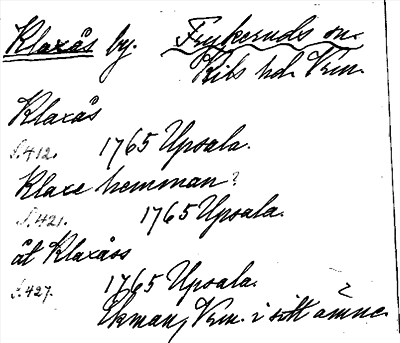 Klaxås by. Frykeruds sn.
Kils hd. Vrm.
Klaxås
s. 412. 1765 Upsala.
Klaxe hemman?
s. 421. 1765 Upsala.
åt Klaxåss
s. 427. 1765 Upsala.
Ekman, Vrm. i sitt ämne.